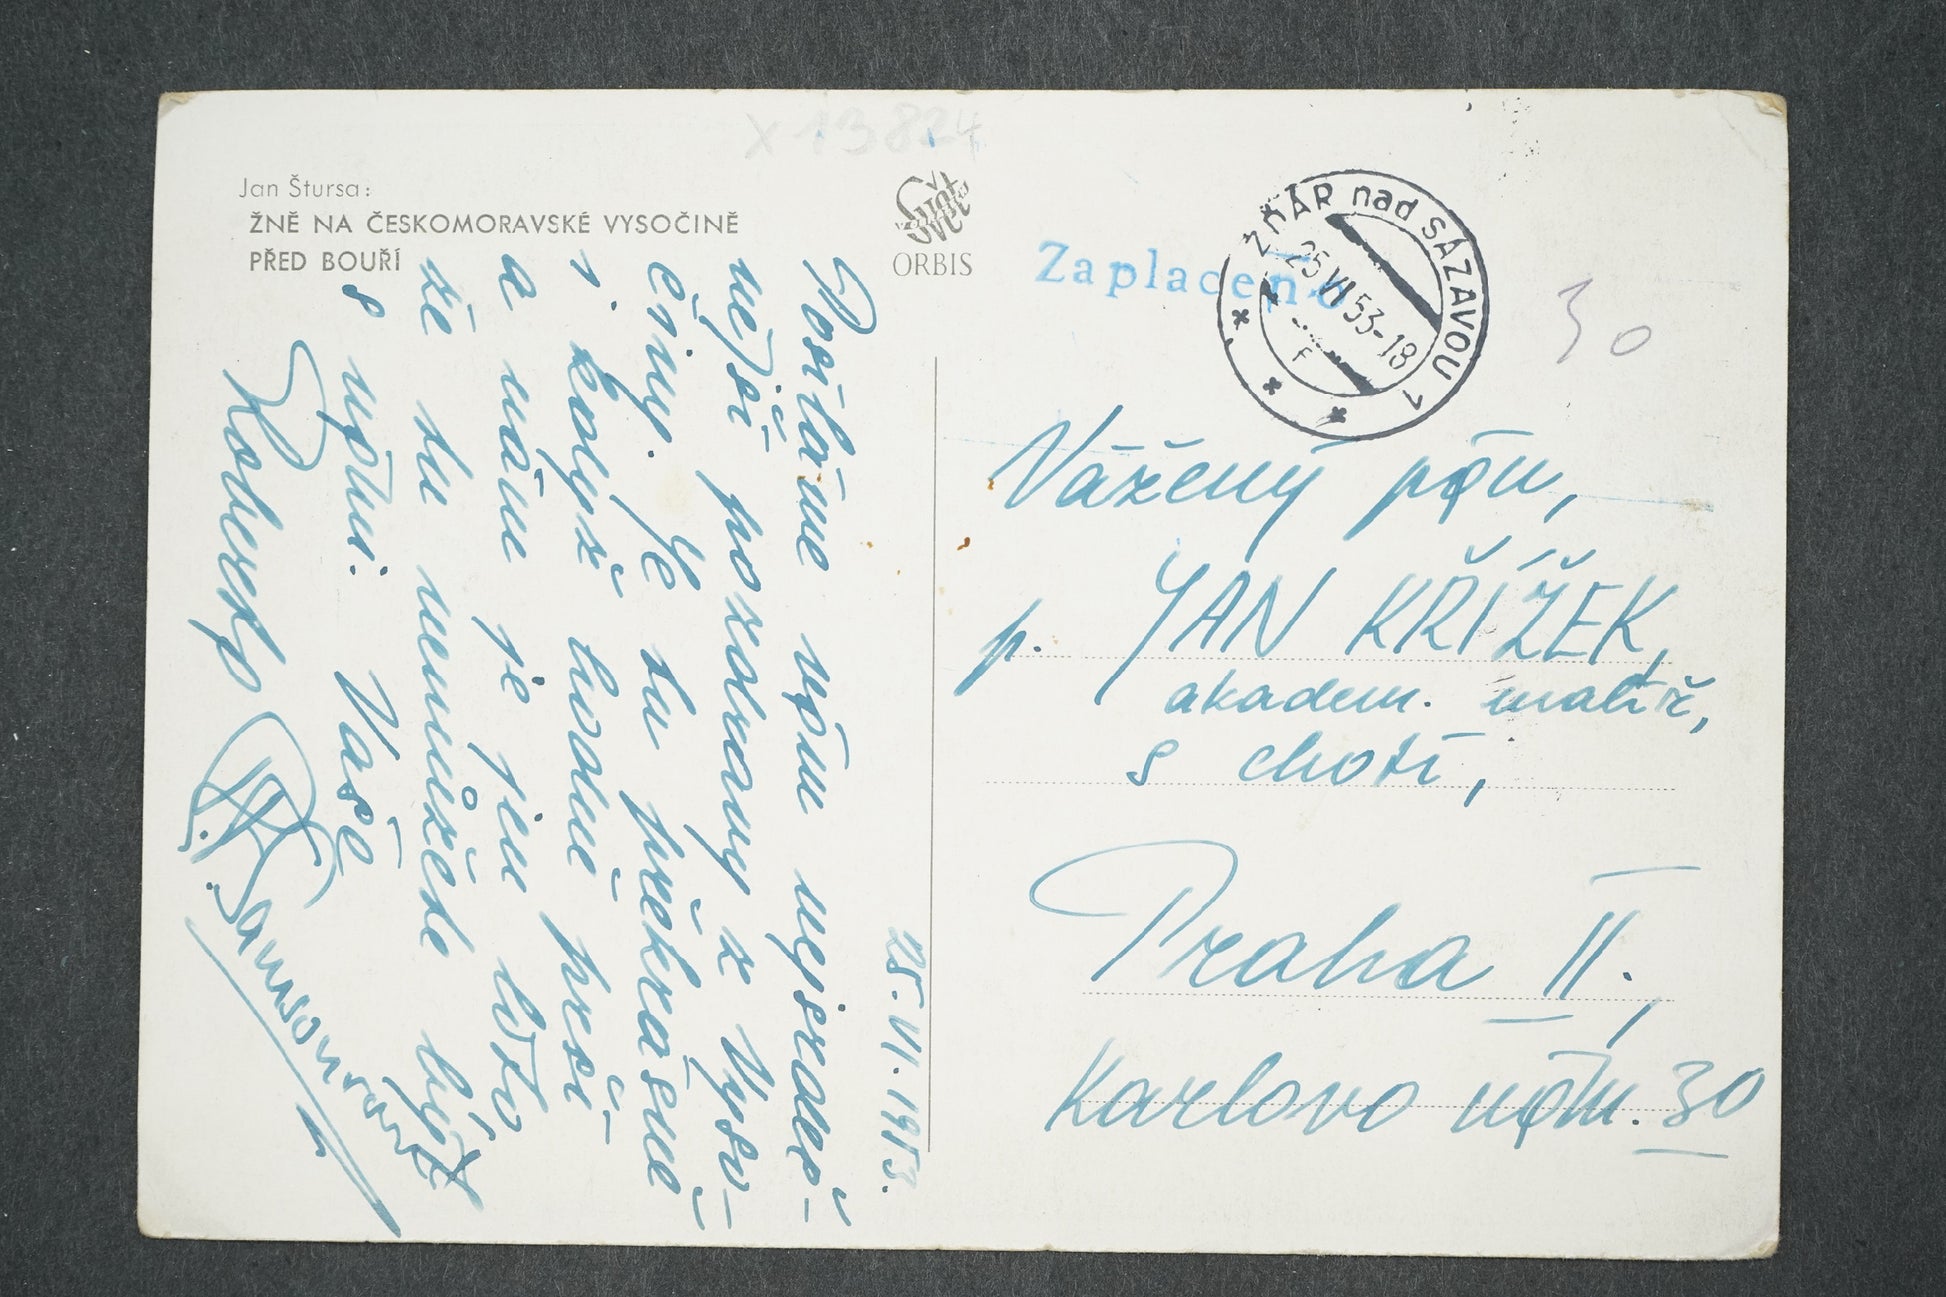 x 13824
Jan Štursa:
ŽNĚ NA ČESKOMORAVSKÉ VYSOČINĚ
PŘED BOUŘÍ
ORBIS
Zaplaceno
ŽĎÁR nad SÁZAVOU 1
25 VI 53-18
F
30
Vážený pán,
p. JAN KŘÍŽEK,
akadem. malíř,
s chotí,
Praha II.,
Karlovo nám. 30
25. VI. 1953.
Posíláme vám nejsrdeč-
nější pozdravy z Vyso-
činy. Je tu překrásně
i když hodně prší
a nám je jen líto
že tu nemůžete být
s námi. Vaše